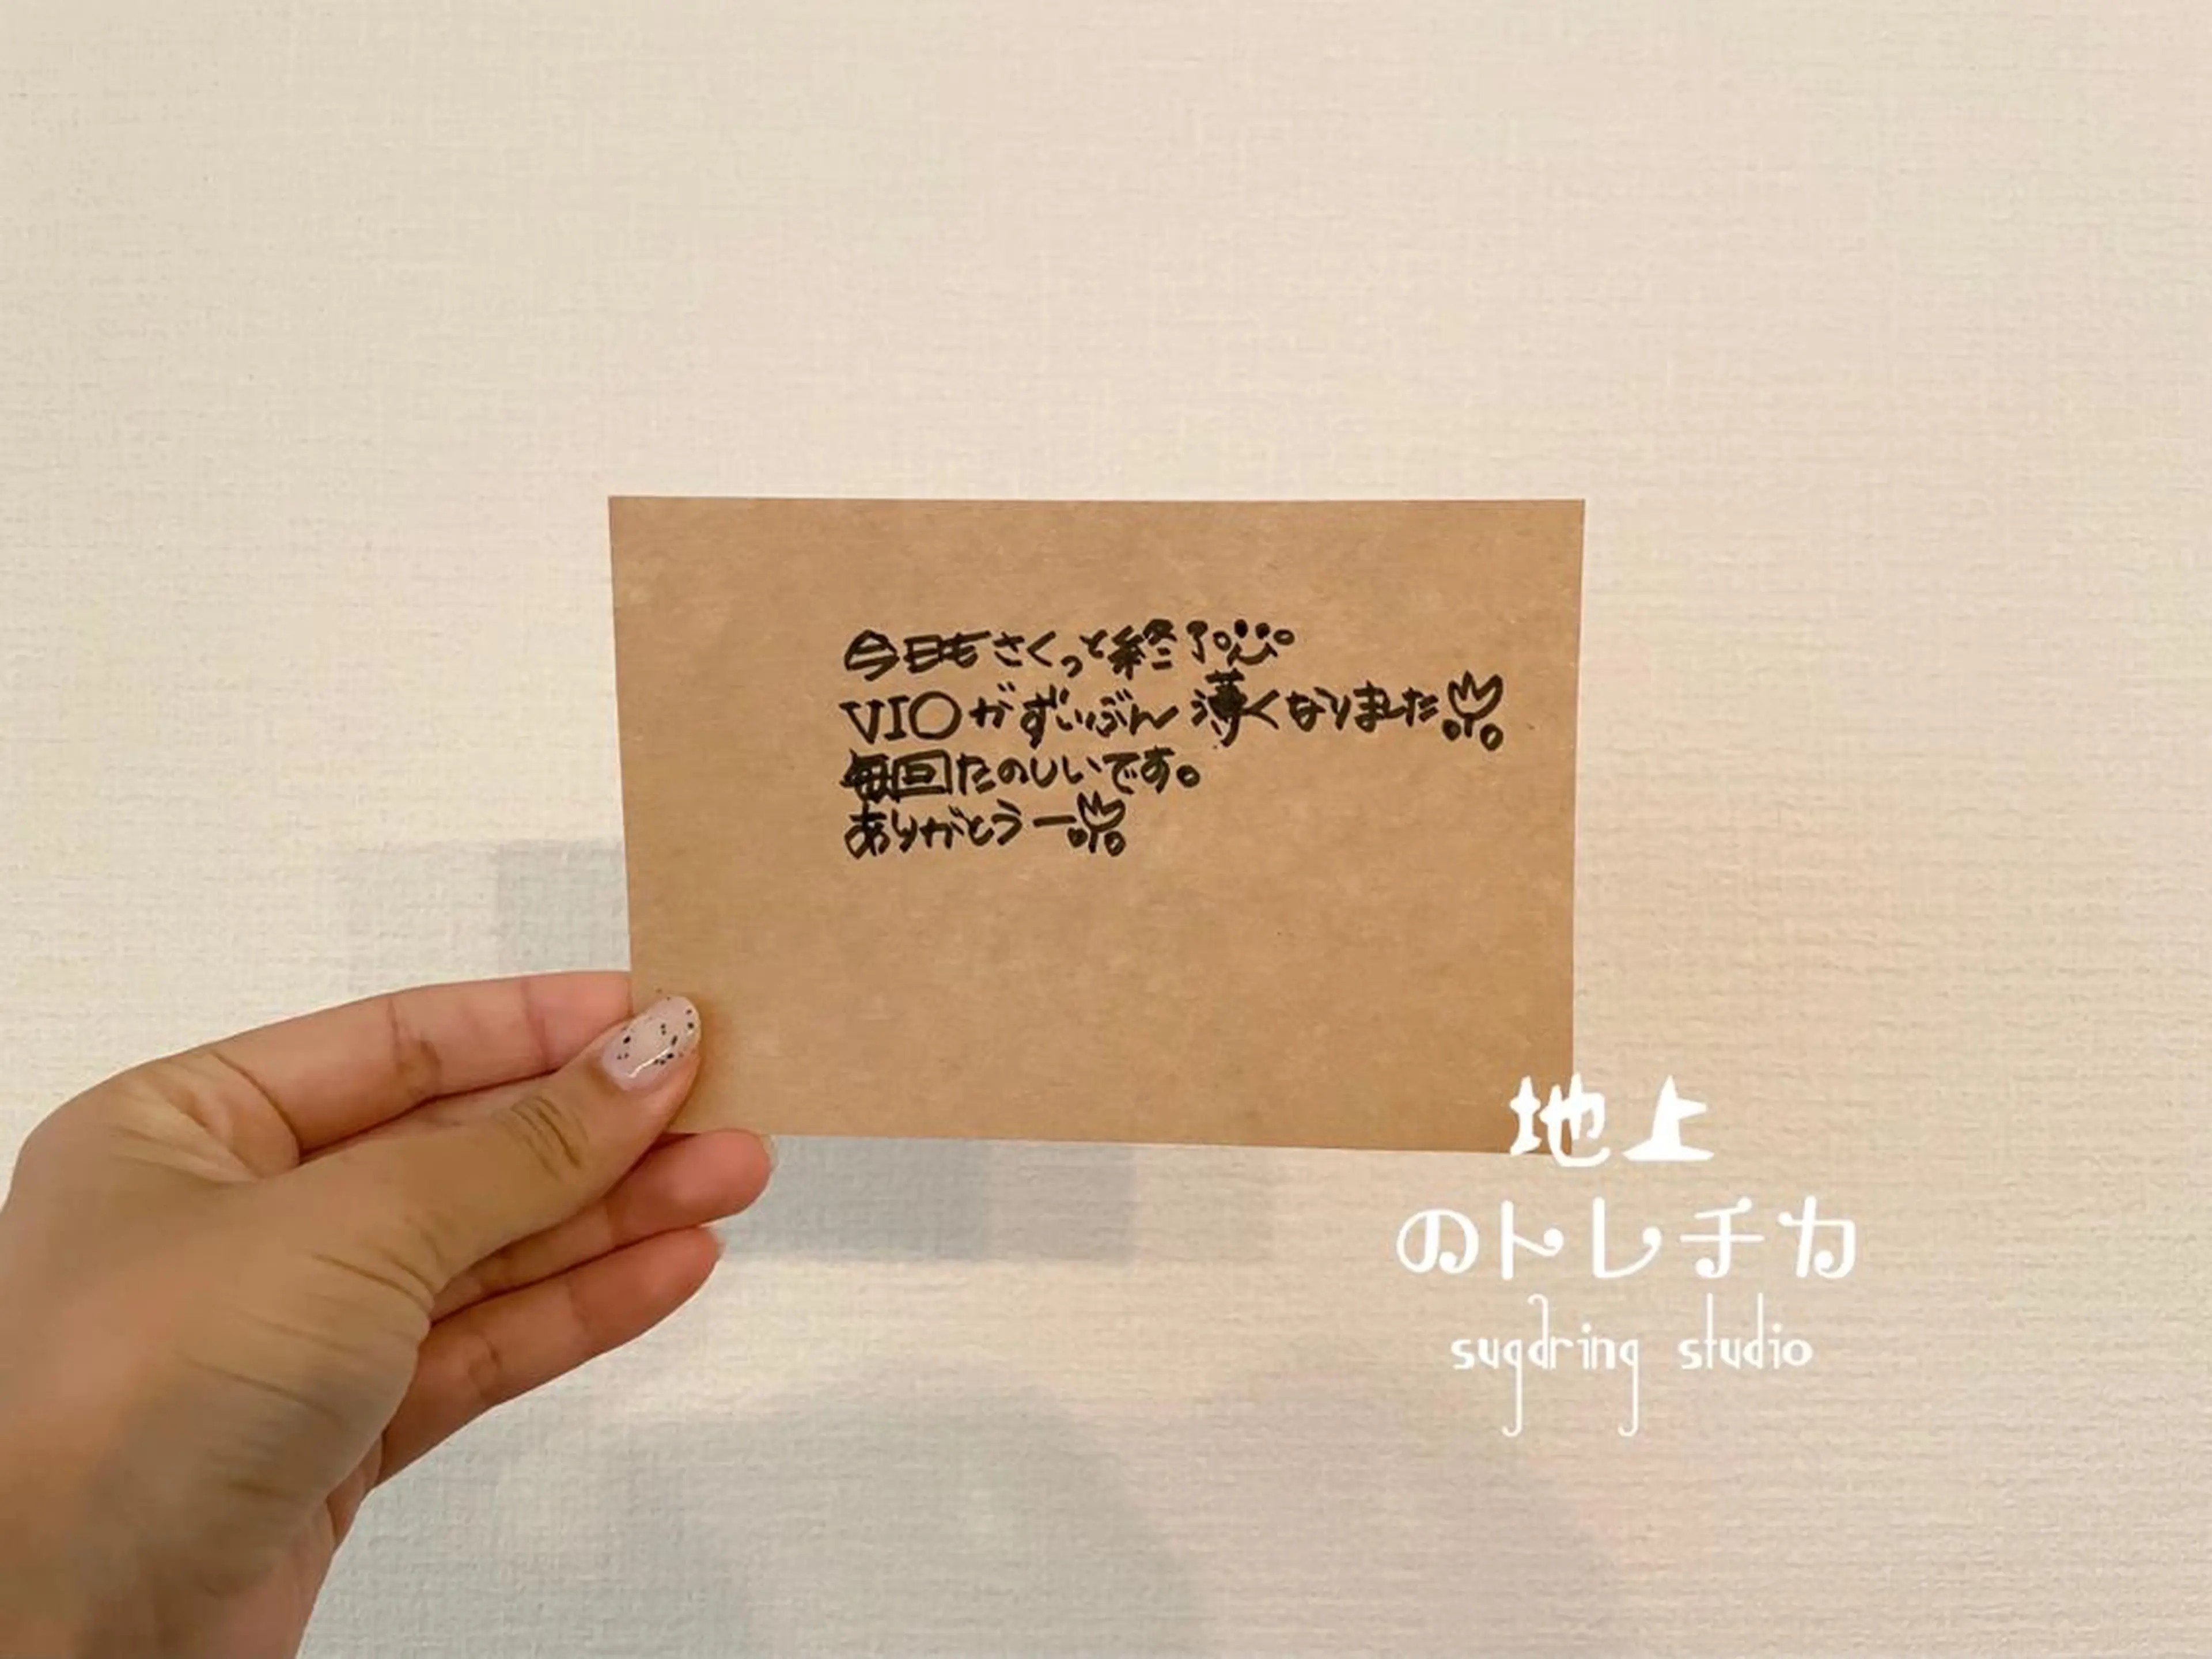 今日もさくっと終了
VIOがずいぶん薄くなりました
毎回たのしいです。
ありがとうー
地上
のトレチカ
sugdring studio